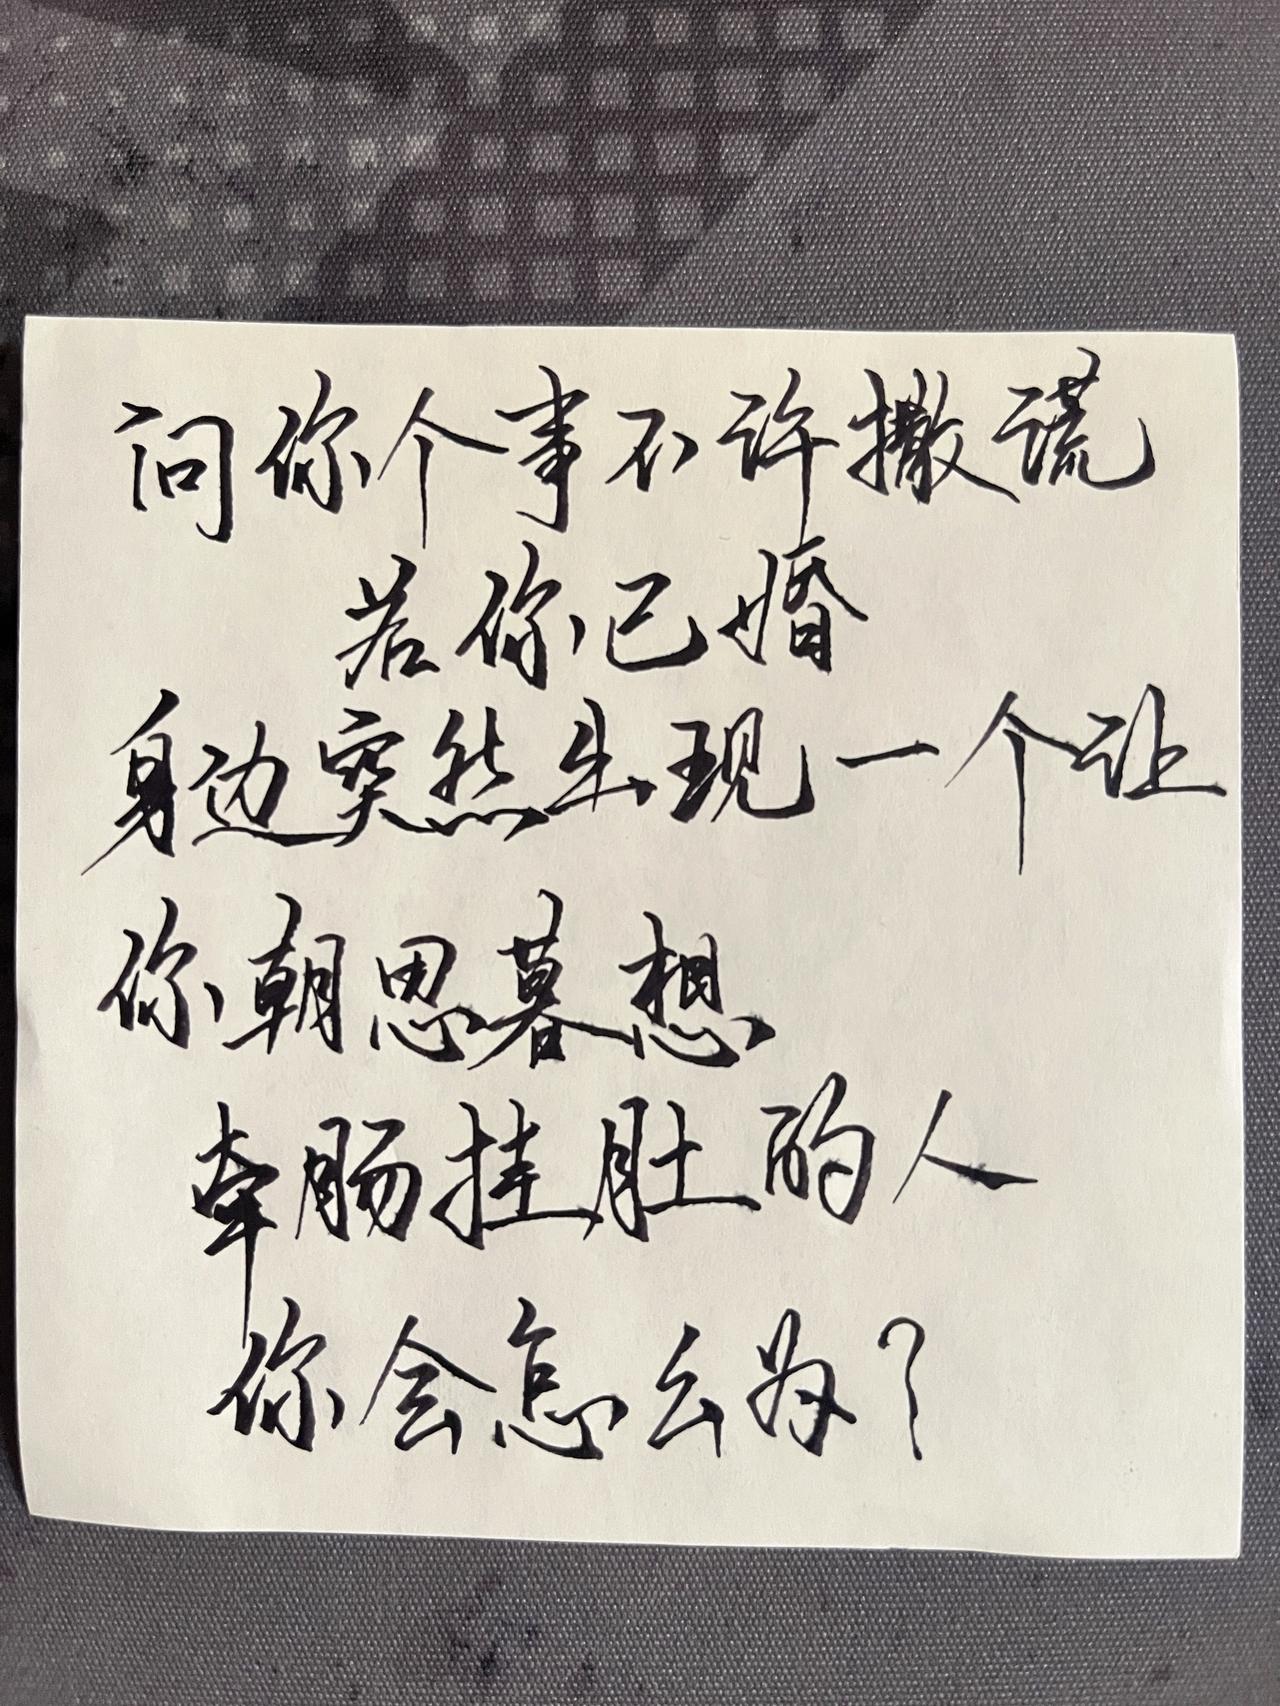 问你个事不许撒谎
若你已婚
身边突然出现一个让
你朝思暮想
牵肠挂肚的人
你会怎么办？